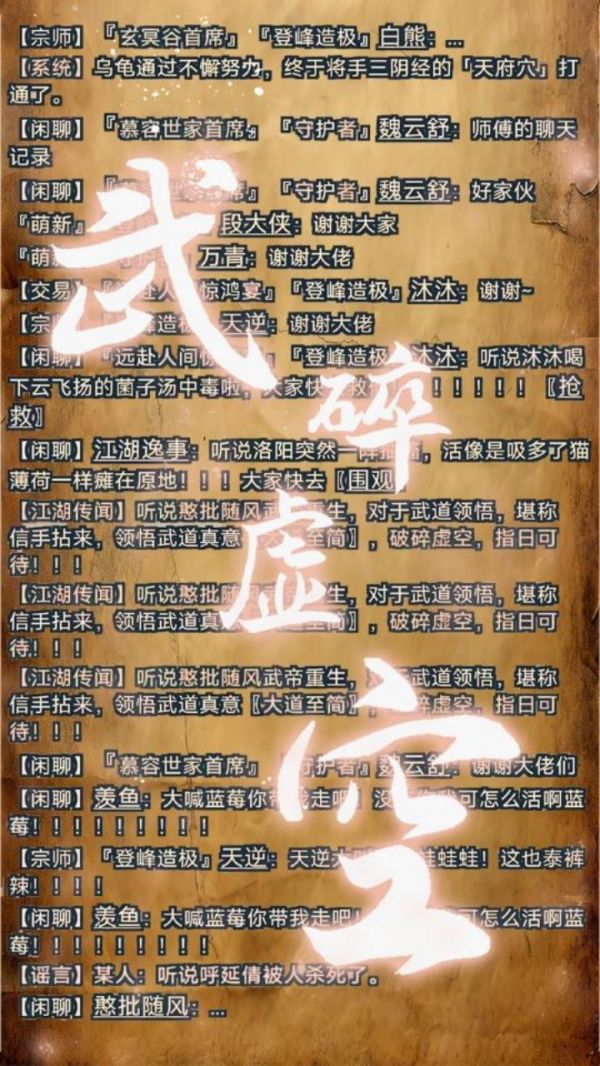 【宗师】『玄冥谷首席』『登峰造极』白熊：...
【系统】乌龟通过不懈努力，终于将手三阴经的「天府穴」打
通了。
【闲聊】『慕容世家首席』『守护者』魏云舒：师傅的聊天
记录
【闲聊】『守护者』魏云舒：好家伙
『萌新』段大侠：谢谢大家
万青：谢谢大佬
【交易】『登峰造极』沐沐：谢谢~
天逆：谢谢大佬
【闲聊】『远赴人间『登峰造极』沐沐：听说沐沐喝
下云飞扬的菌子汤中毒啦，大家快救！！！！！！〖抢
救〗
【闲聊】江湖逸事：听说洛阳突然一阵，活像是吸多了猫
薄荷一样瘫在原地！！！大家快去〖围观
【江湖传闻】听说憨批随风武帝重生，对于武道领悟，堪称
信手拈来，领悟武道真意〖大道至简〗，破碎虚空，指日可
待！！！
【江湖传闻】听说憨批随风武帝重生，对于武道领悟，堪称
信手拈来，领悟武道真意〖大道至简〗，破碎虚空，指日可
待！！！
【江湖传闻】听说憨批随风武帝重生，对于武道领悟，堪称
信手拈来，领悟武道真意〖大道至简〗，破碎虚空，指日可
待！！！
【闲聊】『慕容世家首席』『守护者』魏云舒：谢谢大佬们
【闲聊】羡鱼：大喊蓝莓你带我走吧！没可怎么活啊蓝
莓！！！！！！！！！
【宗师】『登峰造极』天逆：天逆大蛙蛙蛙！这也泰裤
辣！！！！
【闲聊】羡鱼：大喊蓝莓你带我走吧！可怎么活啊蓝
莓！！！！！！！！！
【谣言】某人：听说呼延倩被人杀死了。
【闲聊】憨批随风：...
武
碎
虚
空